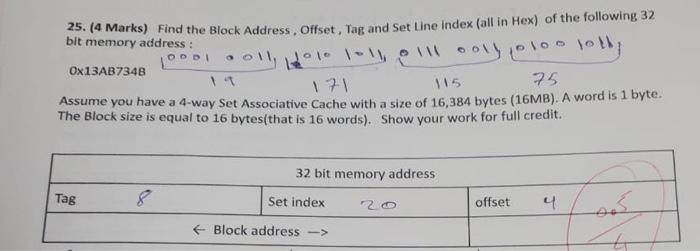 25. (4 Marks) Find the Block Address, Offset, Tag and Set Line index (all in Hex) of the following 32
bit memory address :
0001 0011, 1010 1011, 0111 0011, 0100 1011
0x13AB734B
19 171 115 75
Assume you have a 4-way Set Associative Cache with a size of 16,384 bytes (16MB). A word is 1 byte.
The Block size is equal to 16 bytes(that is 16 words). Show your work for full credit.
32 bit memory address
Tag 8 Set index 20 offset 4
← Block address —>
0.5
4